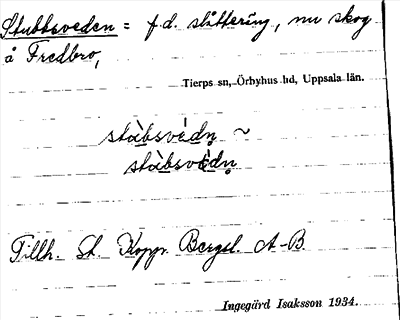 Stubbsveden = f.d. slåttering, nu skog
å Fredbro,
Tierps sn, Örbyhus hd, Uppsala län.
stàbsvédn̥ ~
stàbsvèdn̥
Tillh. St. Koppr. Bergsl. A-B.
Ingegärd Isaksson 1934.